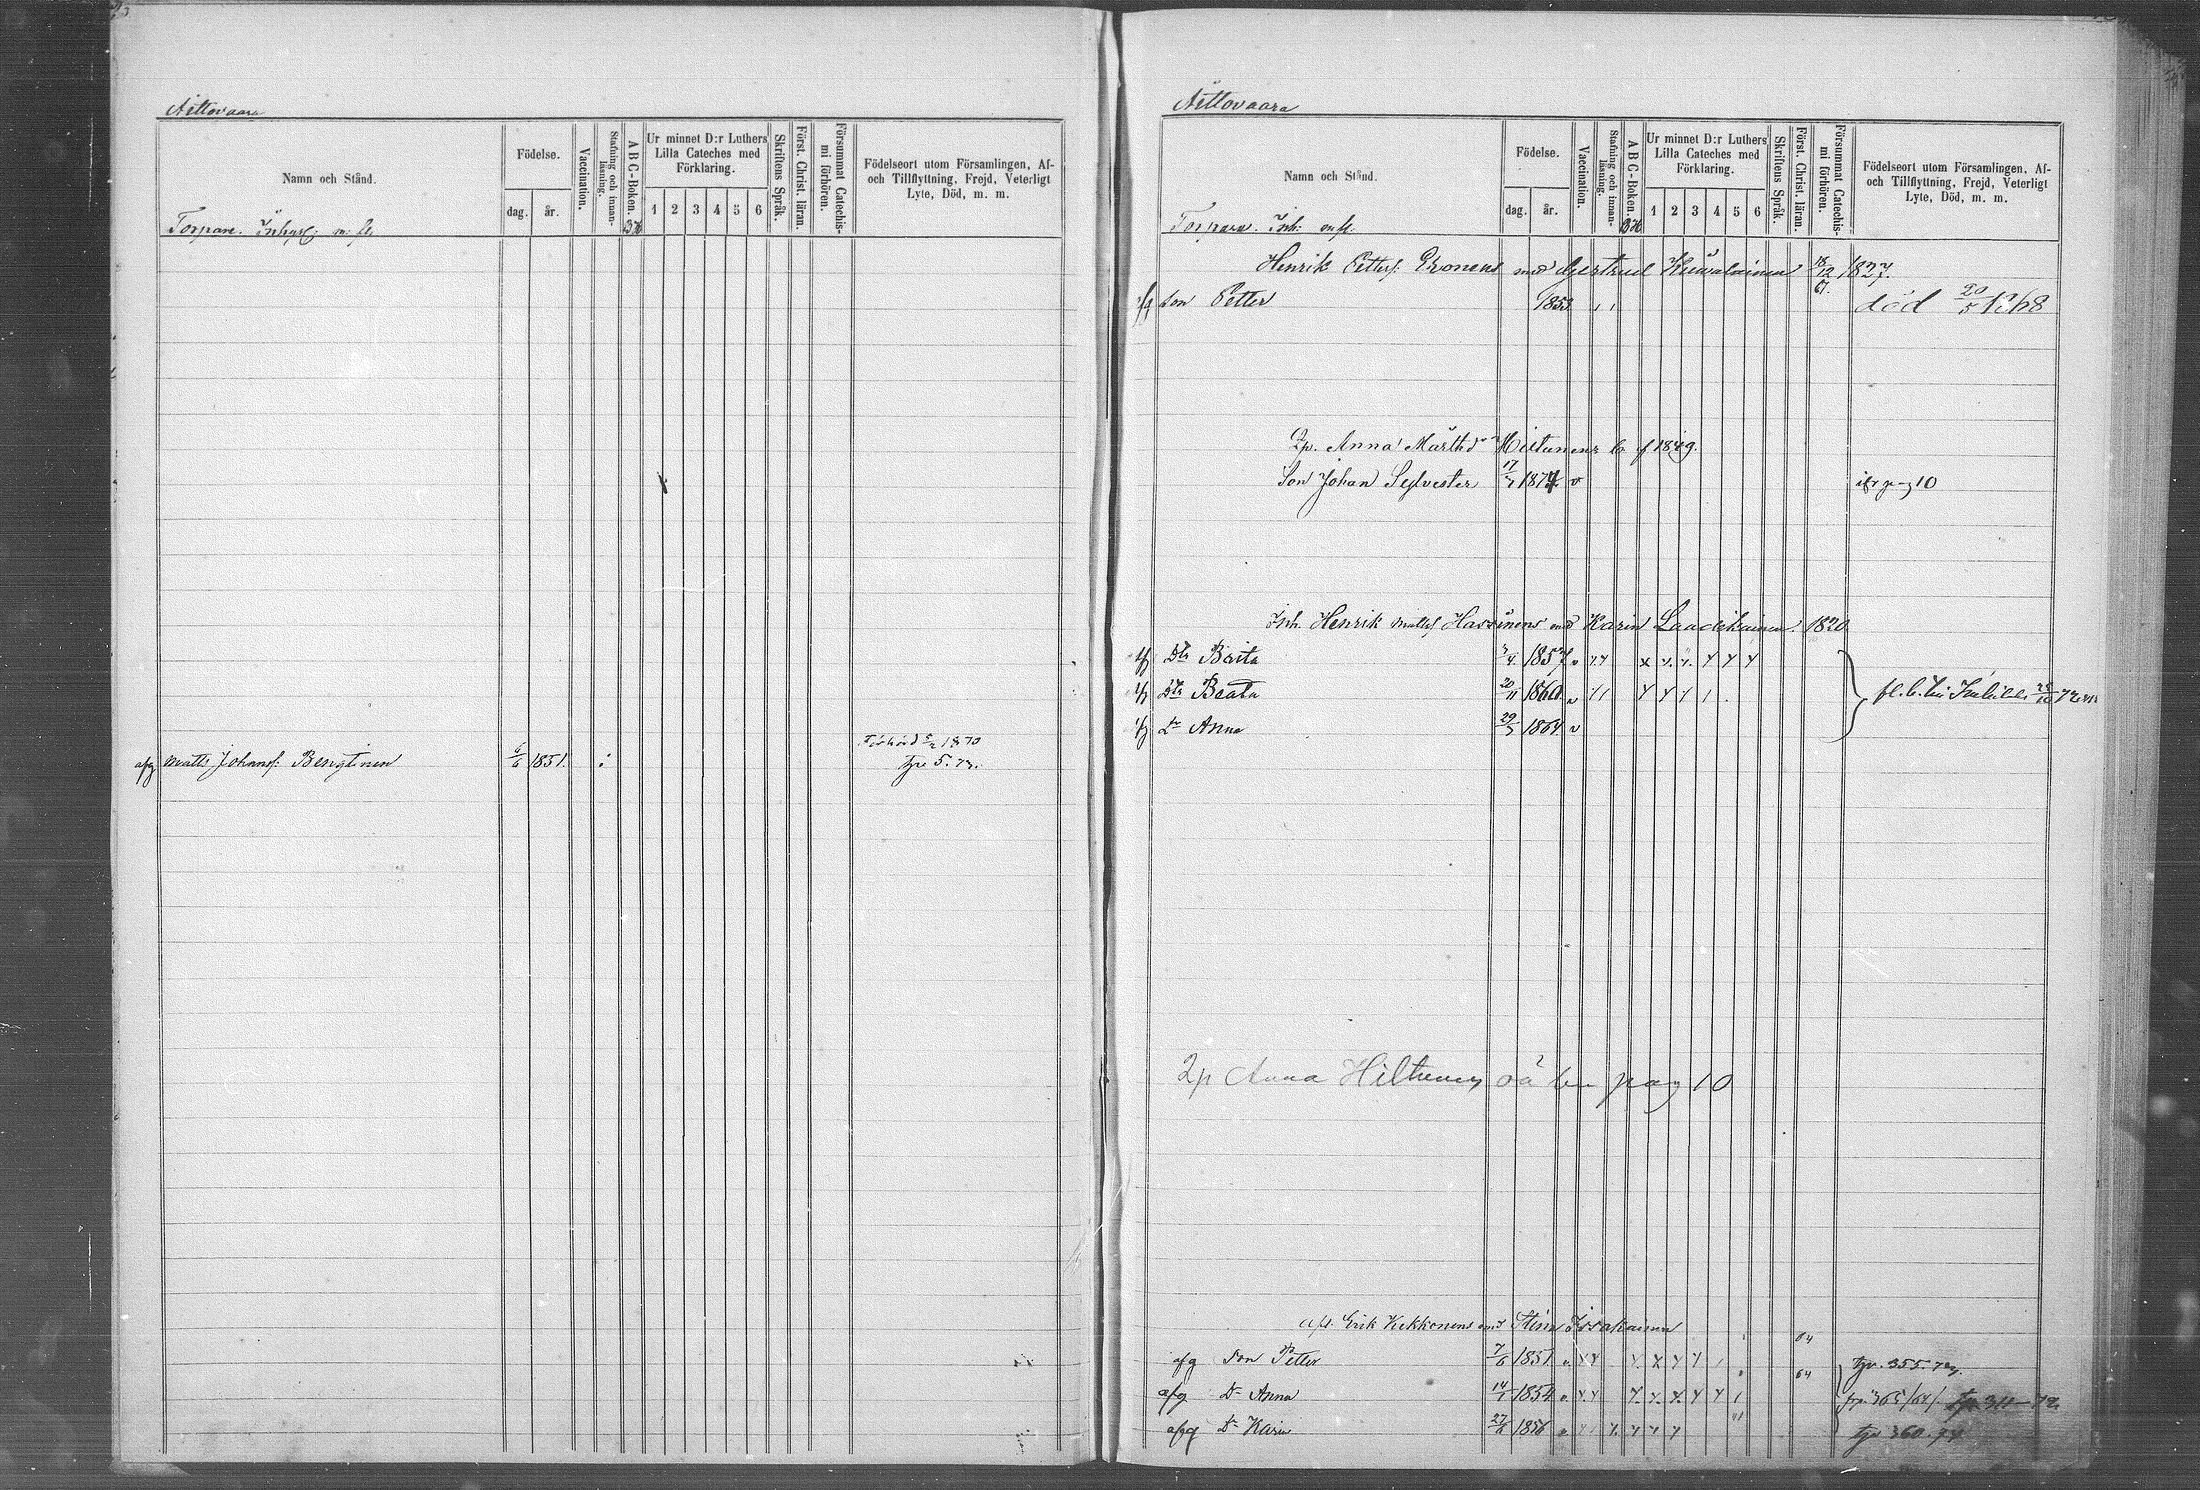 Aittovaara
Namn och Stånd.
Födelse.
dag. år.
Vaccination.
Stafning och innanläsning.
A B C-Boken.
Ur minnet D:r Luthers Lilla Cateches med Förklaring.
1 2 3 4 5 6
Skriftens Språk.
Först. Christ. läran.
Försummat Catechismi förhören.
Födelseort utom Församlingen, Af- och Tillflyttning, Frejd, Veterligt Lyte, Död, m. m.
Torpare. Inhys: m. fl.
afg Matts Johansf: Bengtinen 6/6 1851.
1870
Aittovaara
Namn och Stånd.
Födelse.
dag. år.
Vaccination.
Stafning och innanläsning.
A B C-Boken.
Ur minnet D:r Luthers Lilla Cateches med Förklaring.
1 2 3 4 5 6
Skriftens Språk.
Först. Christ. läran.
Försummat Catechismi förhören.
Födelseort utom Församlingen, Af- och Tillflyttning, Frejd, Veterligt Lyte, Död, m. m.
Torpare. Inh: m fl.
Henrik Petterf: Eronens med Gertrud 18/12 1827.
Son Petter 1853 61. död 20/5 1868
Anna 1849.
Son Johan Sylvester 17/7 1874. v pag 10
Inh. Henrik Mattsf Hassinens med Karin Laadikainen 1820
Dtr Brita 1857. v
Dtr Beata 20/11 1860 v
Dr Anna 29/3 1864 v
Qp Anna Hiltunens pag 10
afl. Erik Kekkonens med Stina
afg Son Petter 7/6 1851 64 355.
afg Dr Anna 14/1 1854 64 365/64
afg Dr Karin 1856 360.